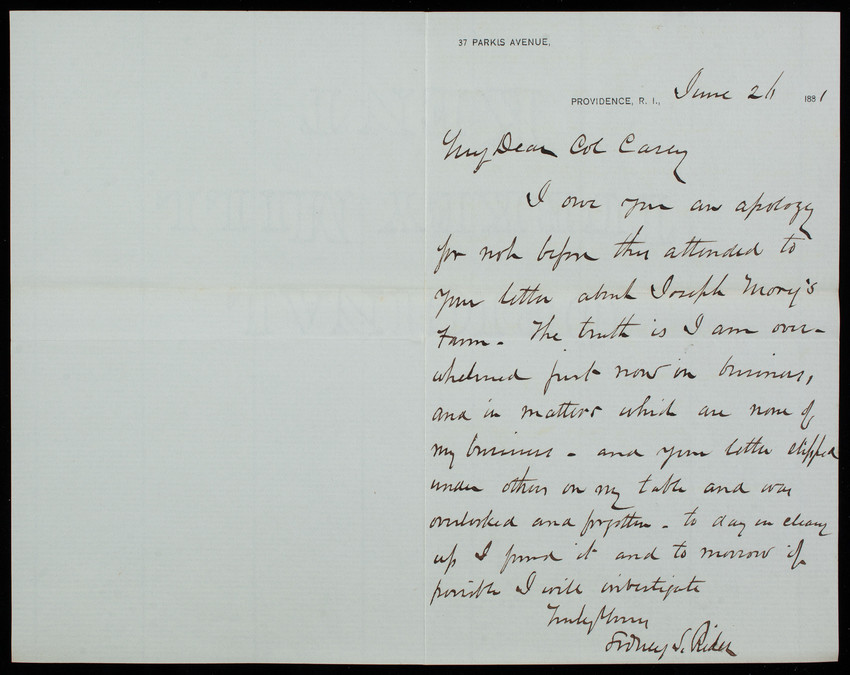 37 PARKIS AVENUE,
PROVIDENCE, R. I., June 26 1881
My Dear Col Casey
I owe you an apology
for not before this attended to
your letter about Joseph Morey's
Farm - The truth is I am over-
whelmed just now in business,
and in matters which are none of
my business - and your letter slipped
under others on my table and was
overlooked and forgotten - to day in cleaning
up I found it and to morrow if
possible I will investigate
Truly Yours
Sidney S. Rider